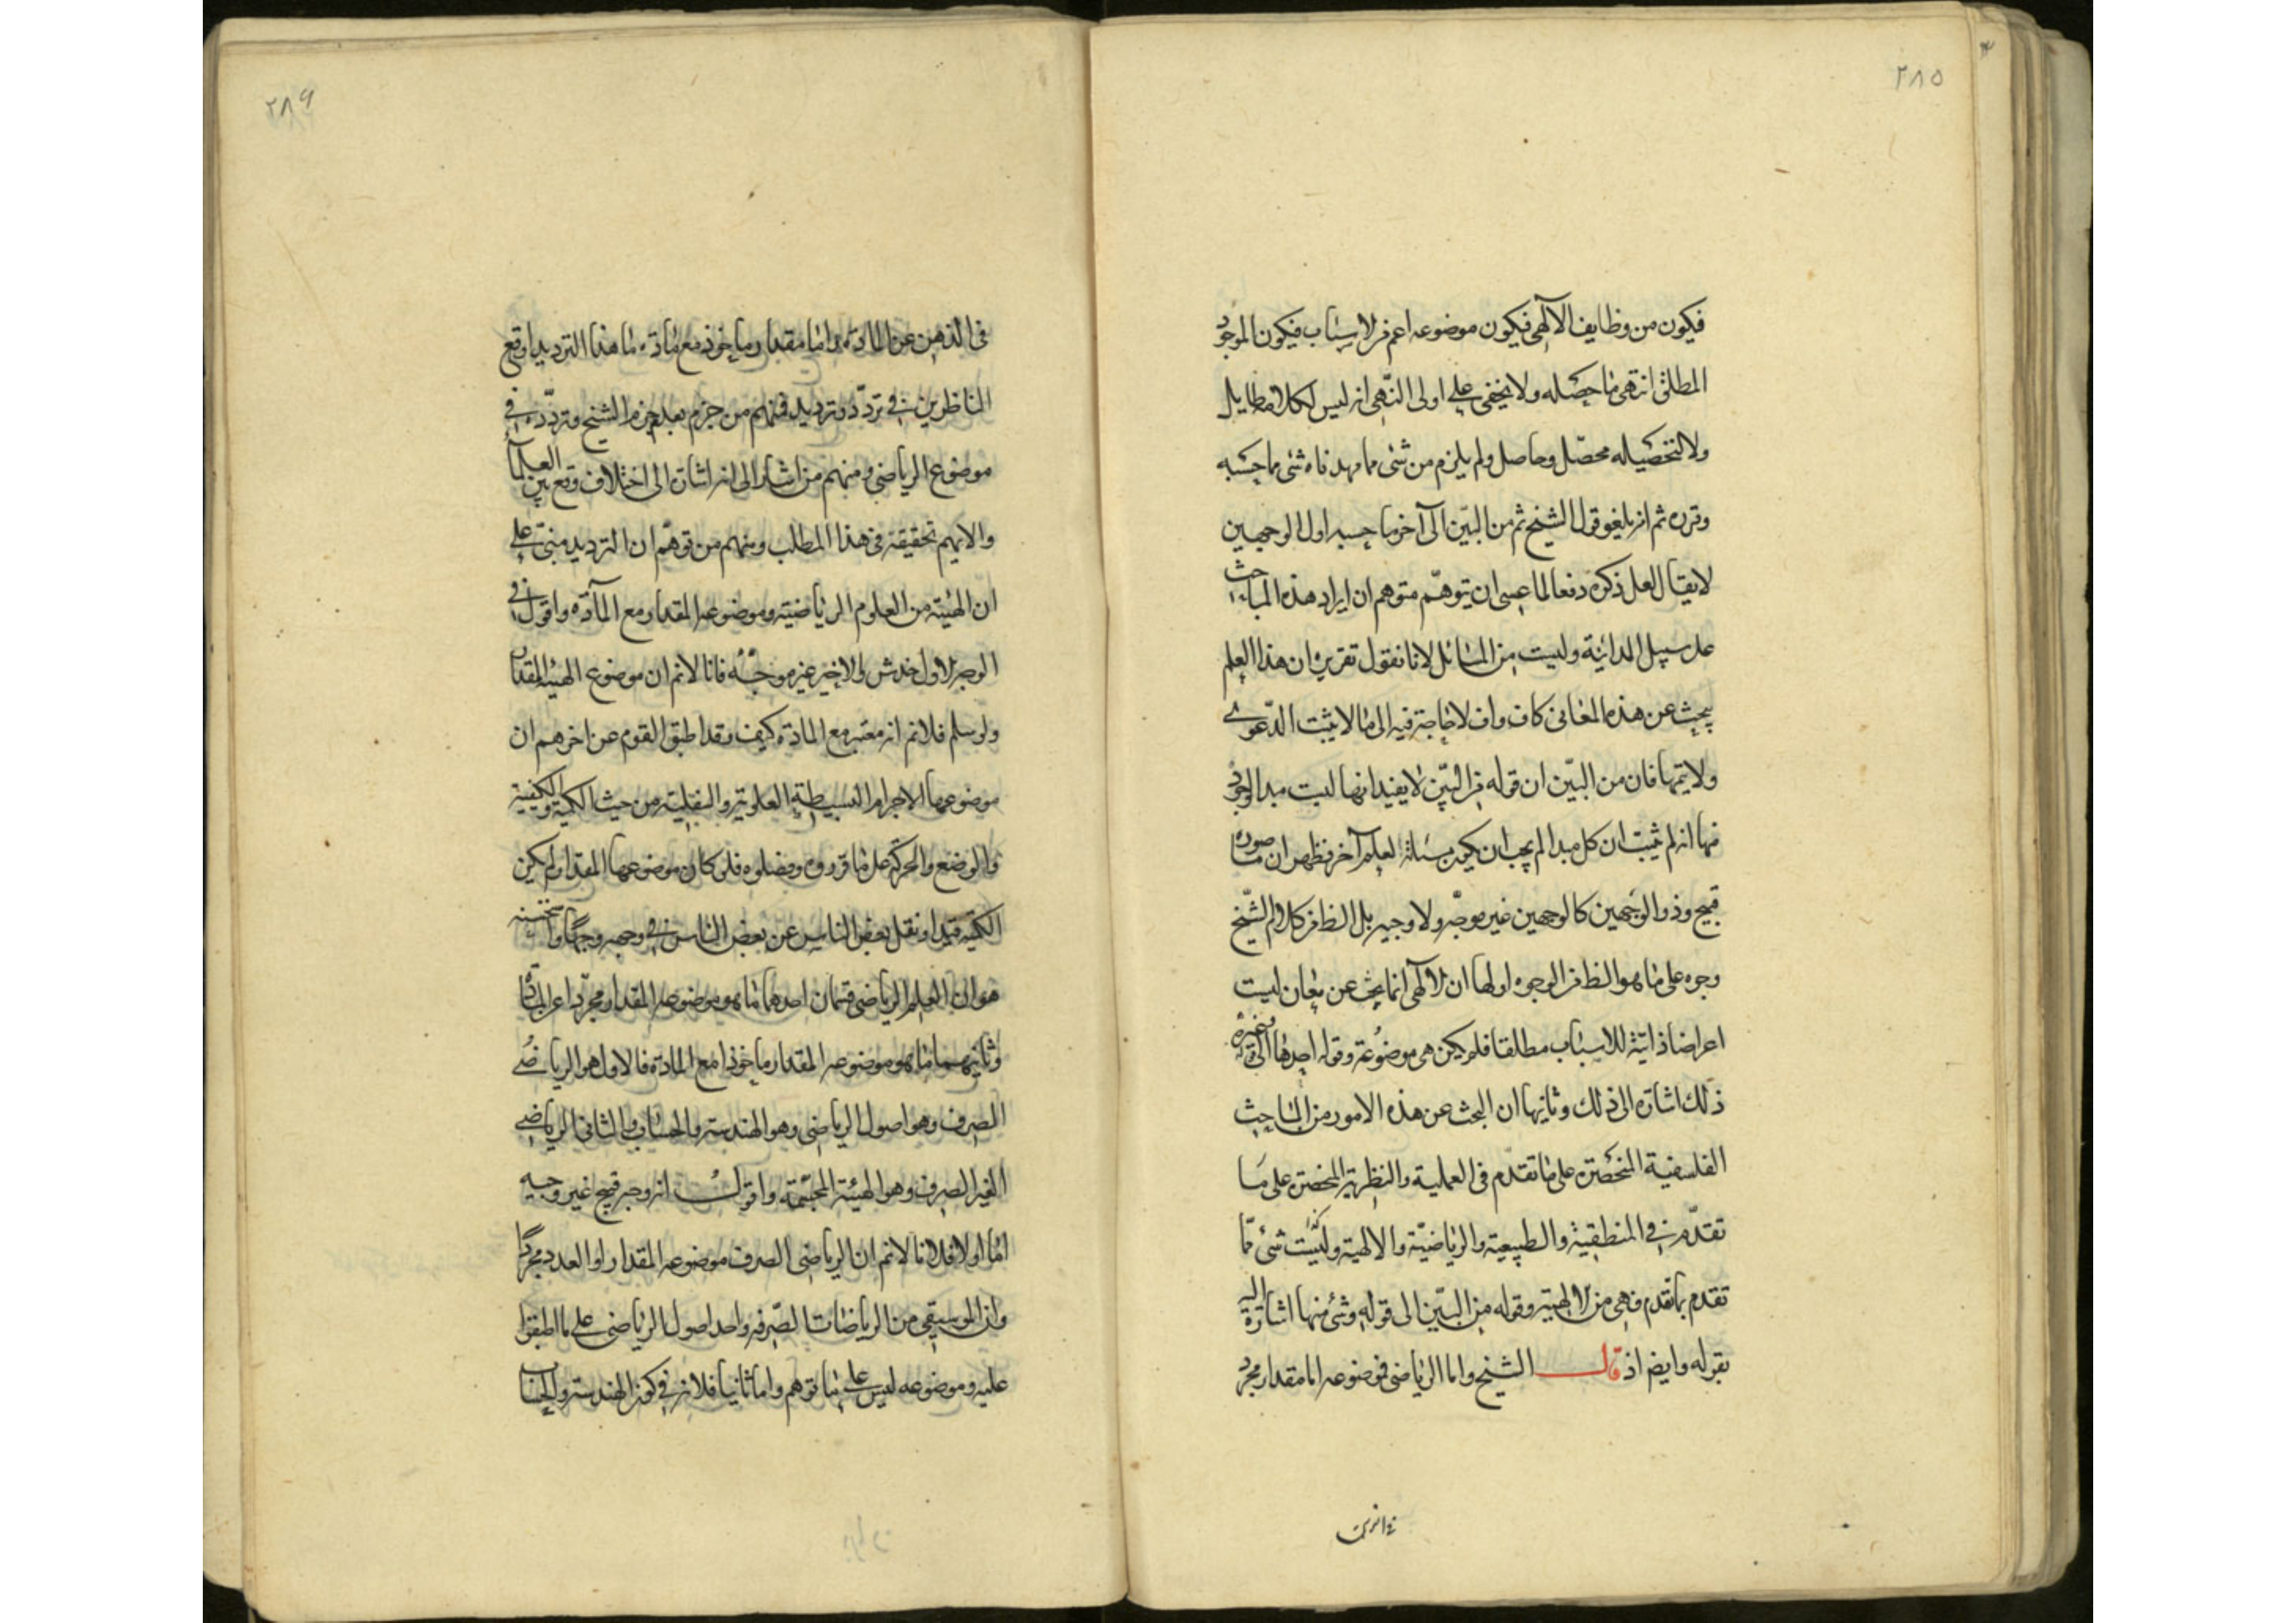 ٢٨٥
فيكون من وظايف الالهى فيكون موضوعه اعم من الاسباب فيكون الموجود
المطلق انتهى ما حصله ولا يخفى على اولى النهى انه ليس لكلامه طايل
ولا لتحصيله محصل وحاصل ولم يلزم من شئ مما مهدناه شئ مما حسبه
وقرره ثم انه بلغو قول الشيخ ثم من البين الى آخر ما حسبه اول الوجهين
لا يقال لعل ذكره دفعا لما عسى ان يتوهم متوهم ان ايراد هذه المباحث
على سبيل المبدائية وليست من المسائل لانا نقول تقريره ان هذا العلم
يبحث عن هذه المعانى كاف واف لا حاجة فيه الى ما لا يثبت الدعوى
ولا يتمها فان من البين ان قوله من البين لا يفيد انها ليست مبدا لوجود
فيها انه لم يثبت ان كل مبدا لم يجب ان يكون مسئلة لعلم آخر فظهر ان ما صوره
قبيح وذو الوجهين كالوجهين غير موجه ولا وجيه بل الظ من كلام الشيخ
وجوه على ما هو الظ من الوجوه اولها ان الالهى انما يبحث عن معان ليست
اعراضا ذاتية للاسباب مطلقا فلم يكن هى موضوعة وقوله احدها الى قوله وغيره
ذلك اشارة الى ذلك وثانيها ان البحث عن هذه الامور من المباحث
الفلسفية المنحصرة على ما تقدم فى العملية والنظرية المنحصرة على ما
تقدم فى المنطقية والطبيعية والرياضية والالهية وليست شئ مما
تقدم بما تقدم فهى من الالهية وقوله من البين الى قوله وشئ منها اشارة اليه
بقوله وايضا اذ قال الشيخ واما الرياضى فموضوعه اما مقدار مجرد
فى الذهن
٢٨٦
فى الذهن عن المادة واما مقدار ماخوذ مع مادة ما هذا الترديد اوقع
الناظرين فى تردد وترديد فمنهم من جزم بعدم جزم الشيخ وتردده فى
موضوع الرياضى ومنهم من اشار الى انه اشارة الى اختلاف وقع بين العلماء
والا يهم تحقيقه فى هذا المطلب ومنهم من توهم ان الترديد مبنى على
ان الهيئة من العلوم الرياضية وموضوعه المقدار مع المادة واقول فى
الوجه الاول خدش والاخير غير موجه فانا لانم ان موضوع الهيئة المقدار
ولو سلم فلانم انه معتبر مع المادة كيف وقد اطبق القوم عن اخرهم ان
موضوعها الاجرام البسيطة العلوية والسفلية من حيث الكمية والكيفية
والوضع والحركة على ما قرروه وفصلوه فلو كان موضوعها المقدار لم يكن
الكمية قيدا ونقل بعض الناس عن بعض الناس فى وجهه وجها واستحسنه
هو ان العلم الرياضى قسمان احدهما ما هو موضوعه المقدار مجردا عن المادة
وثانيهما ما هو موضوعه المقدار ماخوذا مع المادة فالاول هو الرياضى
الصرف وهو اصول الرياضى وهو الهندسة والحساب والثانى الرياضى
الغير الصرف وهو الهيئة المجسمة واقول انه وجه قبيح غير وجيه
اما اولا فلانا لانم ان الرياضى الصرف موضوعه المقدار او العدد مجردا
وان الموسيقى من الرياضات الصرفه واحد اصول الرياضى على ما اطبقوا
عليه وموضوعه ليس على ما توهم واما ثانيا فلانه فى كون الهندسة والحساب